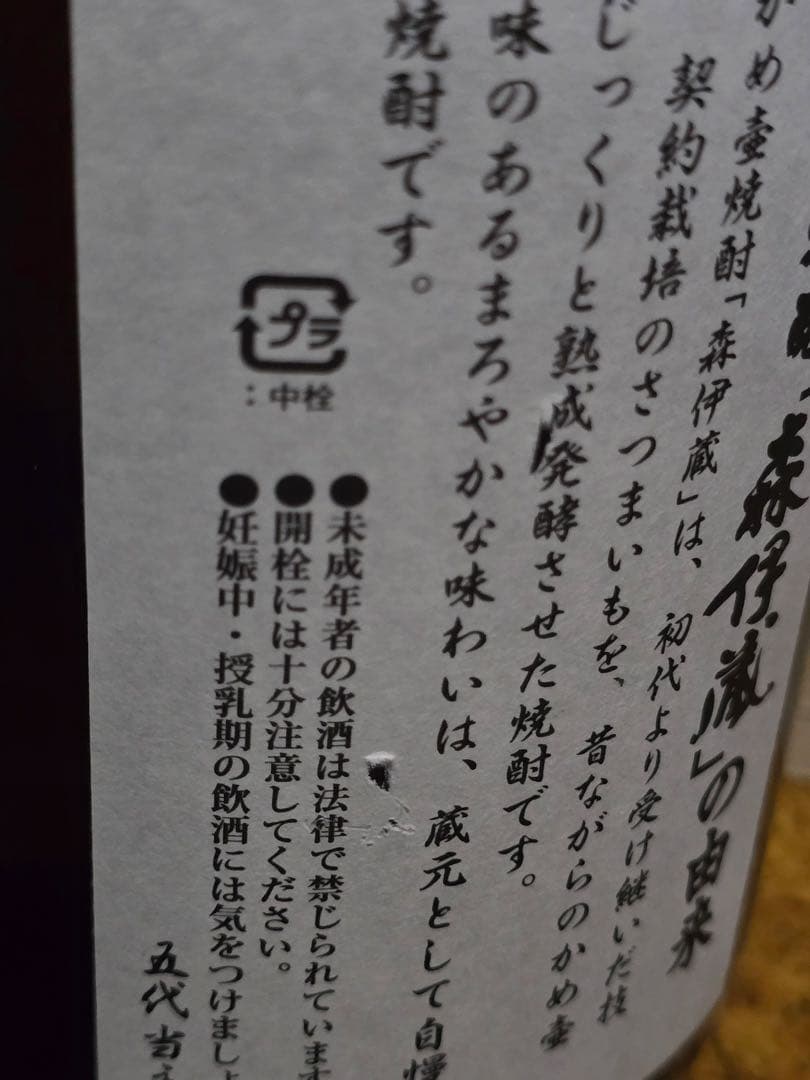 「森伊蔵」の由来
かめ壷焼酎「森伊蔵」は、初代より受け継いだ技
契約栽培のさつまいもを、昔ながらのかめ壷
じっくりと熟成発酵させた焼酎です。
味のあるまろやかな味わいは、蔵元として自慢
焼酎です。
プラ
：中栓
●未成年者の飲酒は法律で禁じられています
●開栓には十分注意してください。
●妊娠中・授乳期の飲酒には気をつけましょ
五代当